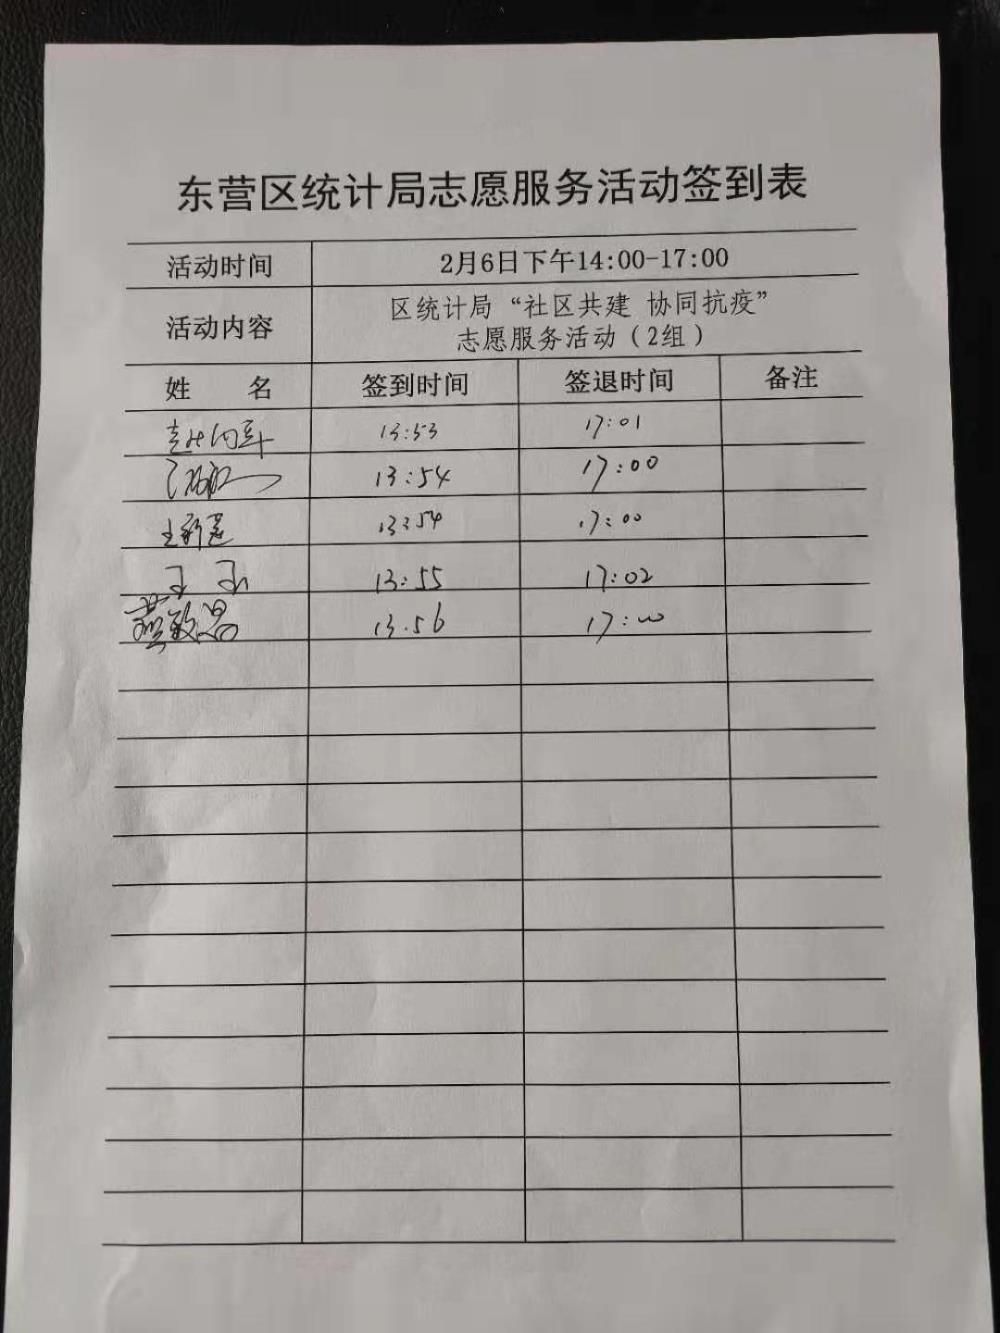 东营区统计局志愿服务活动签到表
活动时间 2月6日下午14:00-17:00
活动内容 区统计局“社区共建 协同抗疫”
志愿服务活动（2组）
姓 名 签到时间 签退时间 备注
13:53 17:01
13:54 17:00
王新 13:54 17:00
王 13:55 17:02
燕敏 13.56 17:00